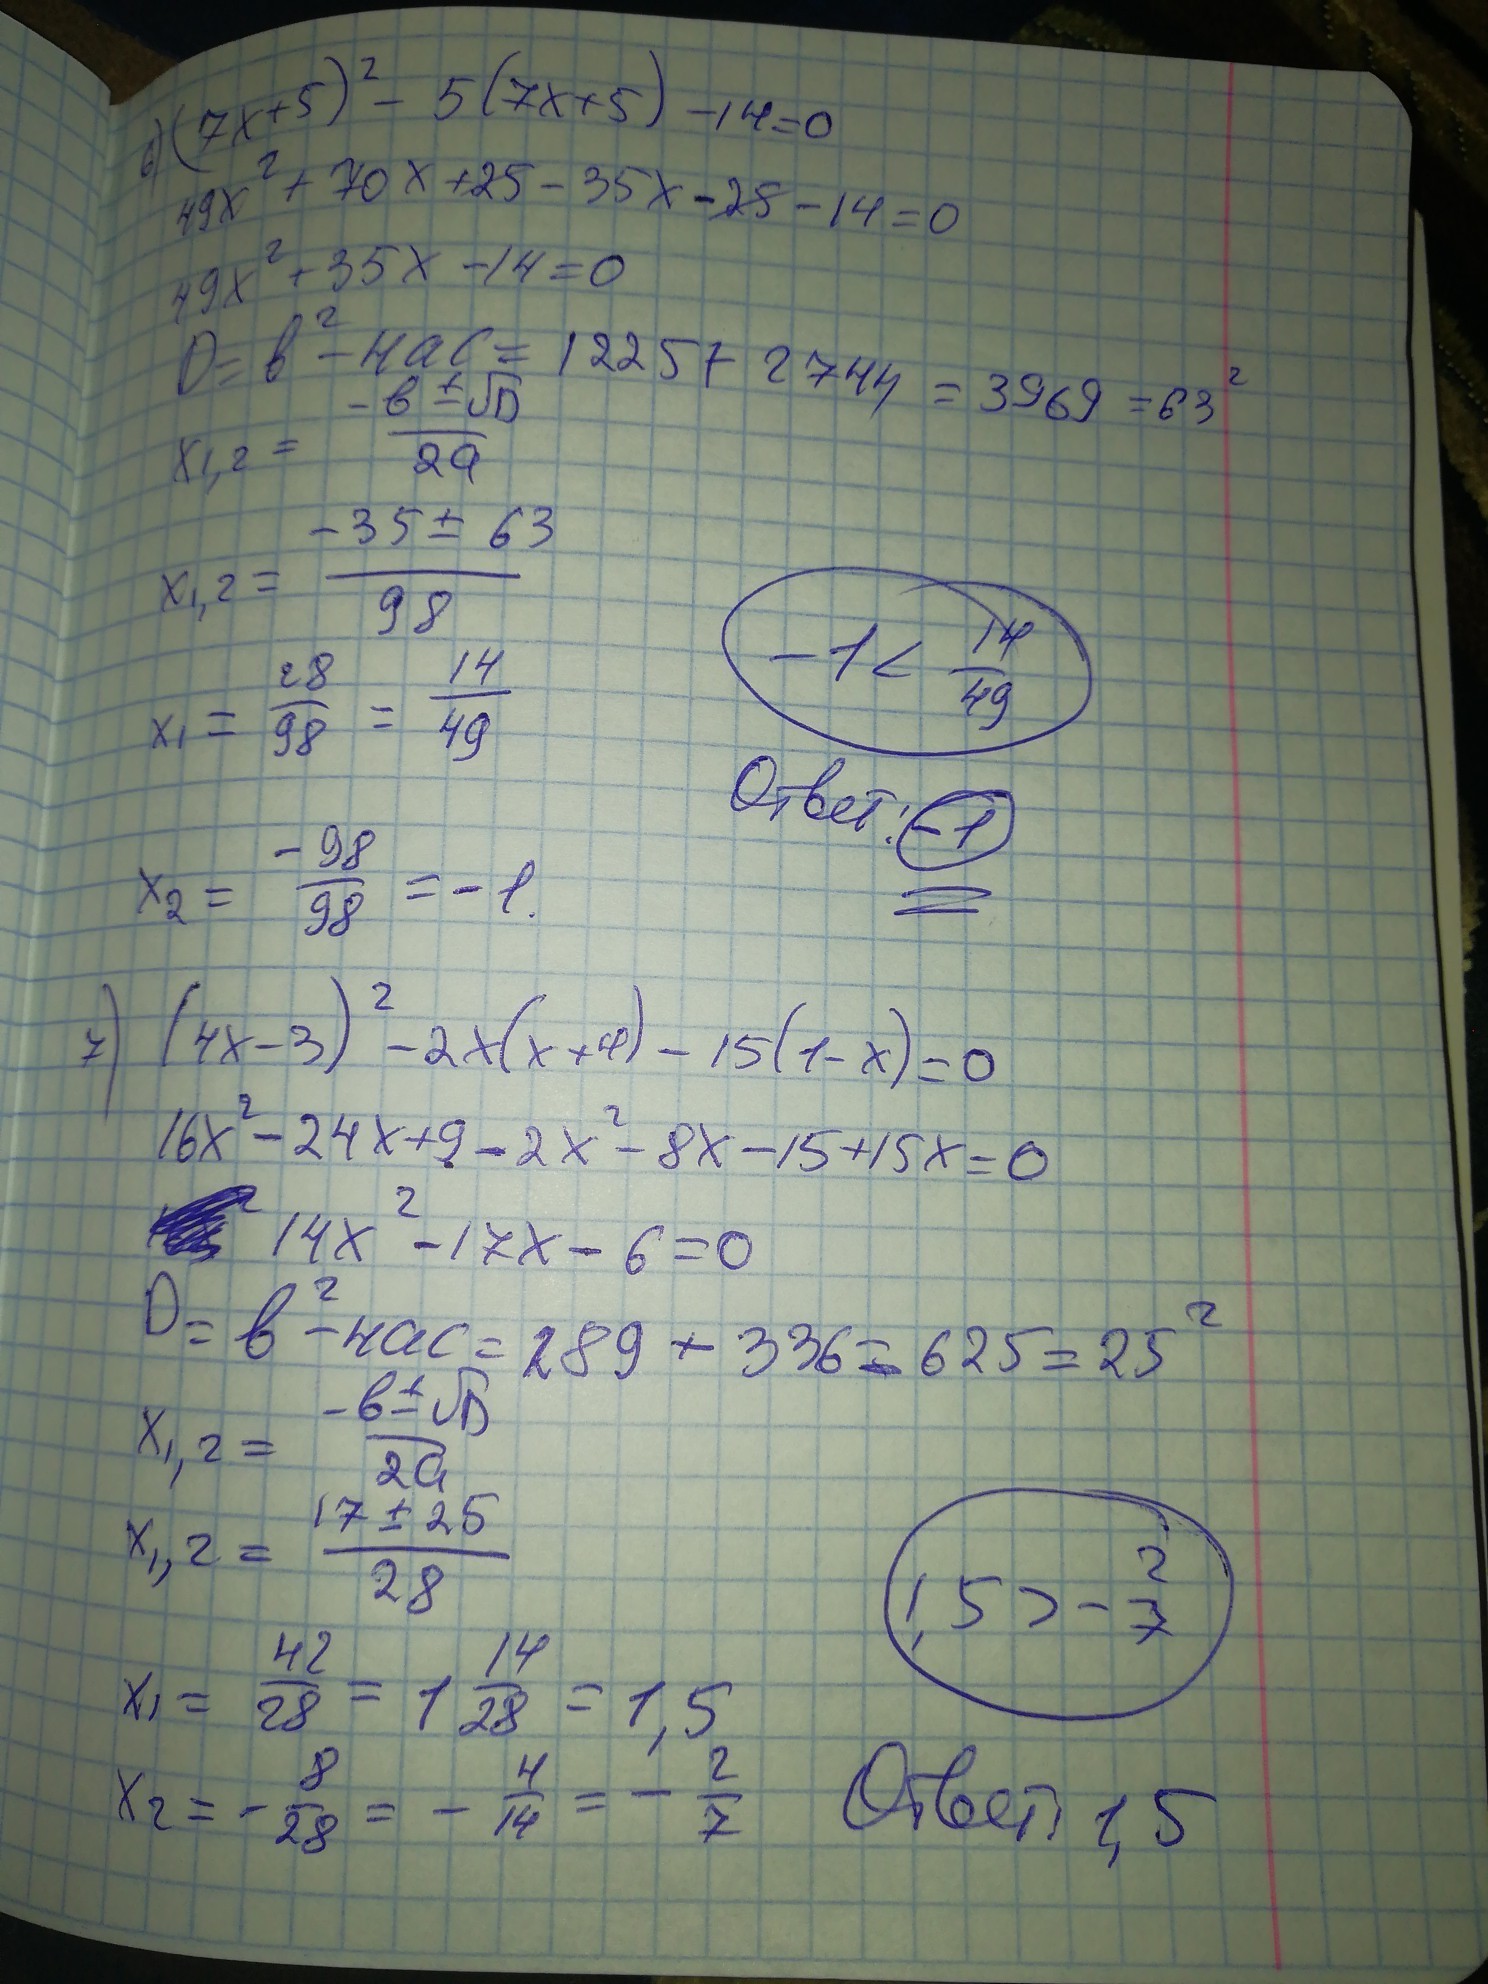 6) (7x+5)² - 5(7x+5) - 14=0
49x² + 70x + 25 - 35x - 25 - 14 = 0
49x² + 35x - 14 = 0
D = b² - 4ac = 1225 + 2744 = 3969 = 63²
x₁,₂ = (-b ± √D)/(2a)
x₁,₂ = (-35 ± 63)/98
x₁ = 28/98 = 14/49
-1 < 14/49
Ответ: -1
x₂ = -98/98 = -1.
7) (4x-3)² - 2x(x+4) - 15(1-x) = 0
16x² - 24x + 9 - 2x² - 8x - 15 + 15x = 0
14x² - 17x - 6 = 0
D = b² - 4ac = 289 + 336 = 625 = 25²
x₁,₂ = (-b ± √D)/(2a)
x₁,₂ = (17 ± 25)/28
1,5 > -2/7
x₁ = 42/28 = 1 14/28 = 1,5
x₂ = -8/28 = -4/14 = -2/7
Ответ: 1,5